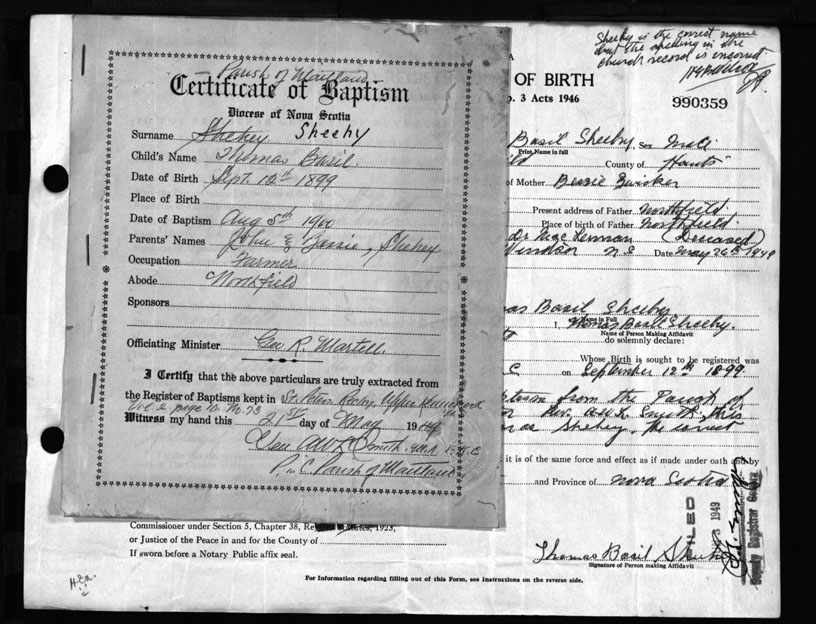 Parish of Maitland
Certificate of Baptism
Diocese of Nova Scotia
Surname Shehey Sheehy
Child's Name Thomas Basil
Date of Birth Sept. 12th 1899
Place of Birth
Date of Baptism Aug 5th 1900
Parents' Names John & Bessie, Shehey
Occupation Farmer
Abode Northfield
Sponsors
Officiating Minister Geo R. Martell.
I Certify that the above particulars are truly extracted from
the Register of Baptisms kept in St. Peters Upper
Vol 2 page 10. No. 73
Witness my hand this 21st day of May 1949
Smith
P in C Parish of Maitland
Sheehy is the correct name
but the spelling in the
church record is incorrect
OF BIRTH
3 Acts 1946
990359
Basil Sheehy Sex Male
Print Name in full
County of Hants
of Mother Bessie Zwicker
Present address of Father Northfield
Place of birth of Father Northfield
Dr MacLennan (Deceased)
Windsor N S Date May 26th 1949
Basil Sheehy
Name in Full
I, Thomas Basil Sheehy.
Name of Person Making Affidavit
do solemnly declare:
Whose Birth is sought to be registered was
on September 12th 1899.
from the Parish of
Rev. Smith this
Shehey, the correct
it is of the same force and effect as if made under oath and by
and Province of Nova Scotia
FILED
1949
Deputy Registrar General
Commissioner under Section 5, Chapter 38, 1923,
or Justice of the Peace in and for the County of
If sworn before a Notary Public affix seal.
Thomas Basil Sheehy
Signature of Person making Affidavit
For Information regarding filling out of this Form, see Instructions on the reverse side.